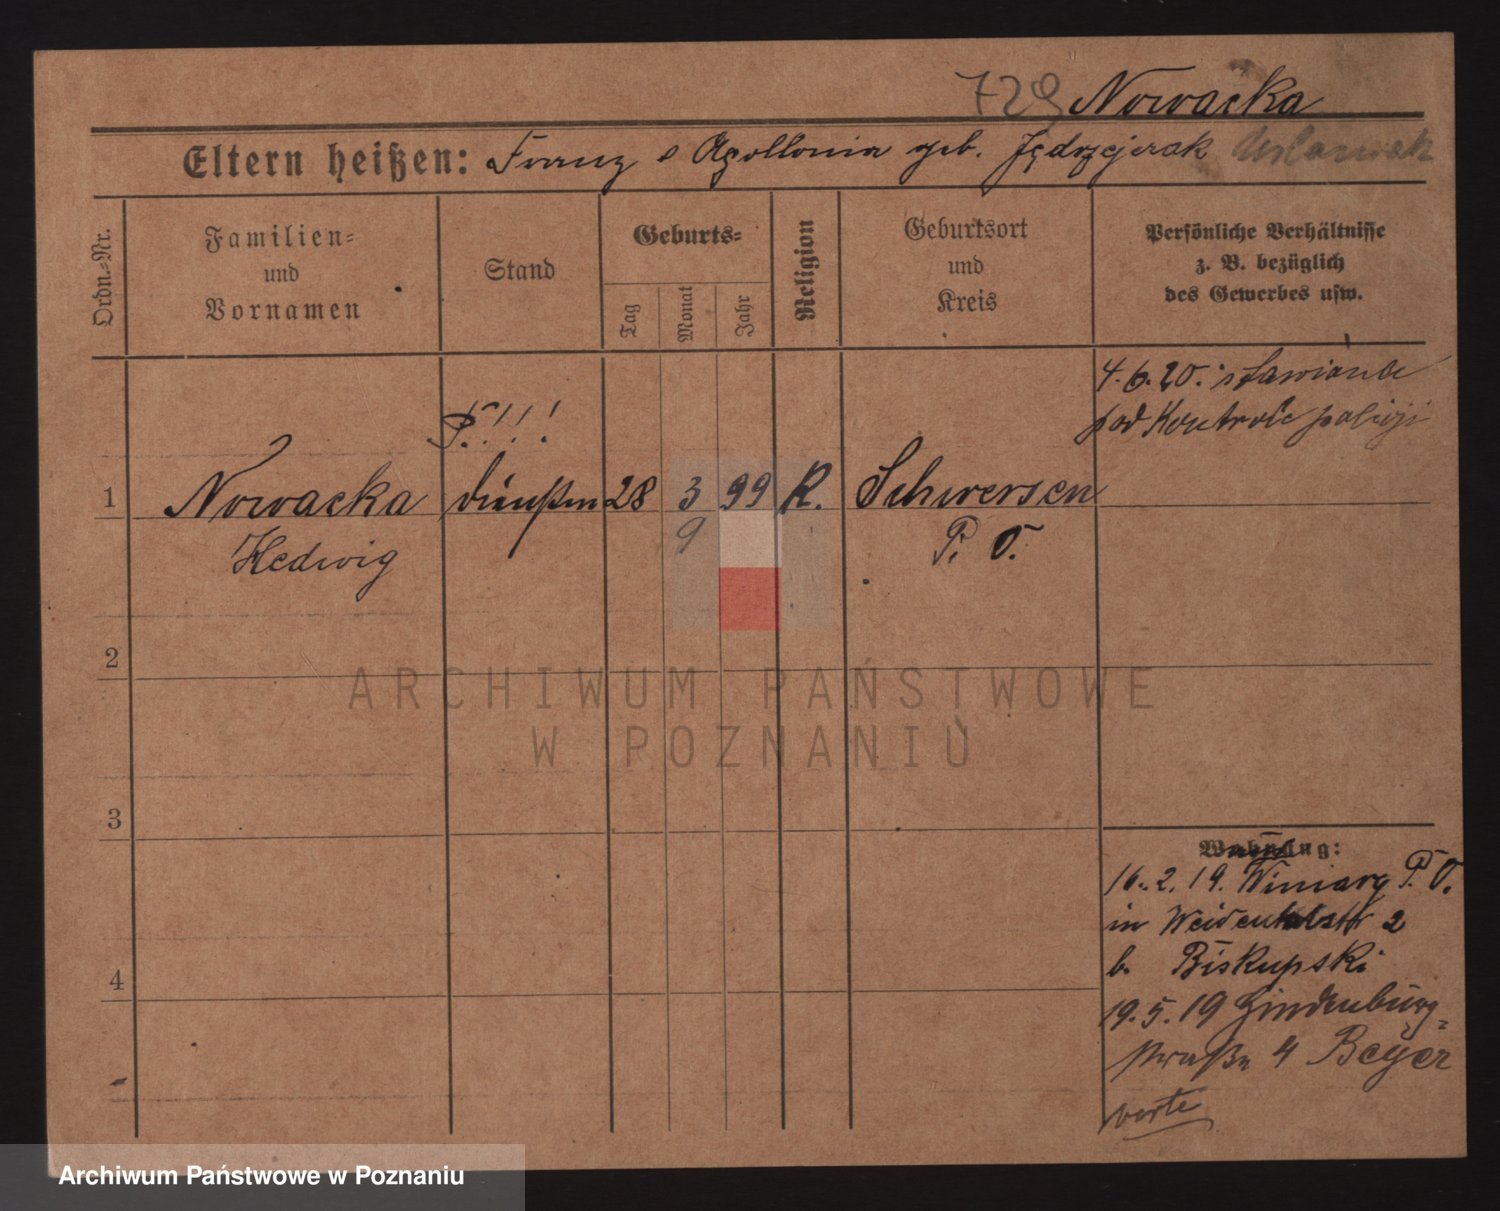 729 Nowacka
Eltern heißen: Franz e Apollonia geb. Jędrzejczak
Ordn.-Nr.
Familien-
und
Vornamen
Stand
Geburts-
Tag
Monat
Jahr
Religion
Geburtsort
und
Kreis
Persönliche Verhältnisse
z. B. bezüglich
des Gewerbes usw.
4.6.20. stawiona
pod Kontrole policji
P.!!!
1 Nowacka 28 3 99 R. Schwersen
9
Hedwig P. O.
2
3
4
Wohnung:
16.2.19. Winiary P. O.
in 2
b. Biskupski
19.5.19 Hindenburg-
straße 4 Beyer
verte
ARCHIWUM PAŃSTWOWE
W POZNANIU
Archiwum Państwowe w Poznaniu